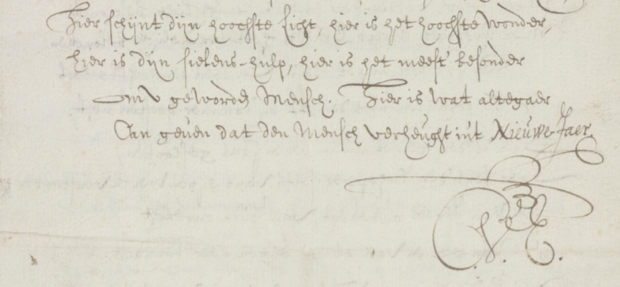 Hier schijnt dijn hoochste licht, hier is het hoochste wonder,
hier is dijn sielens-hulp, hier is het meest besonder
om v geworden Mensch. Hier is wat altegaer
Can geven dat den Mensch verheught int Nieuwe-Jaer